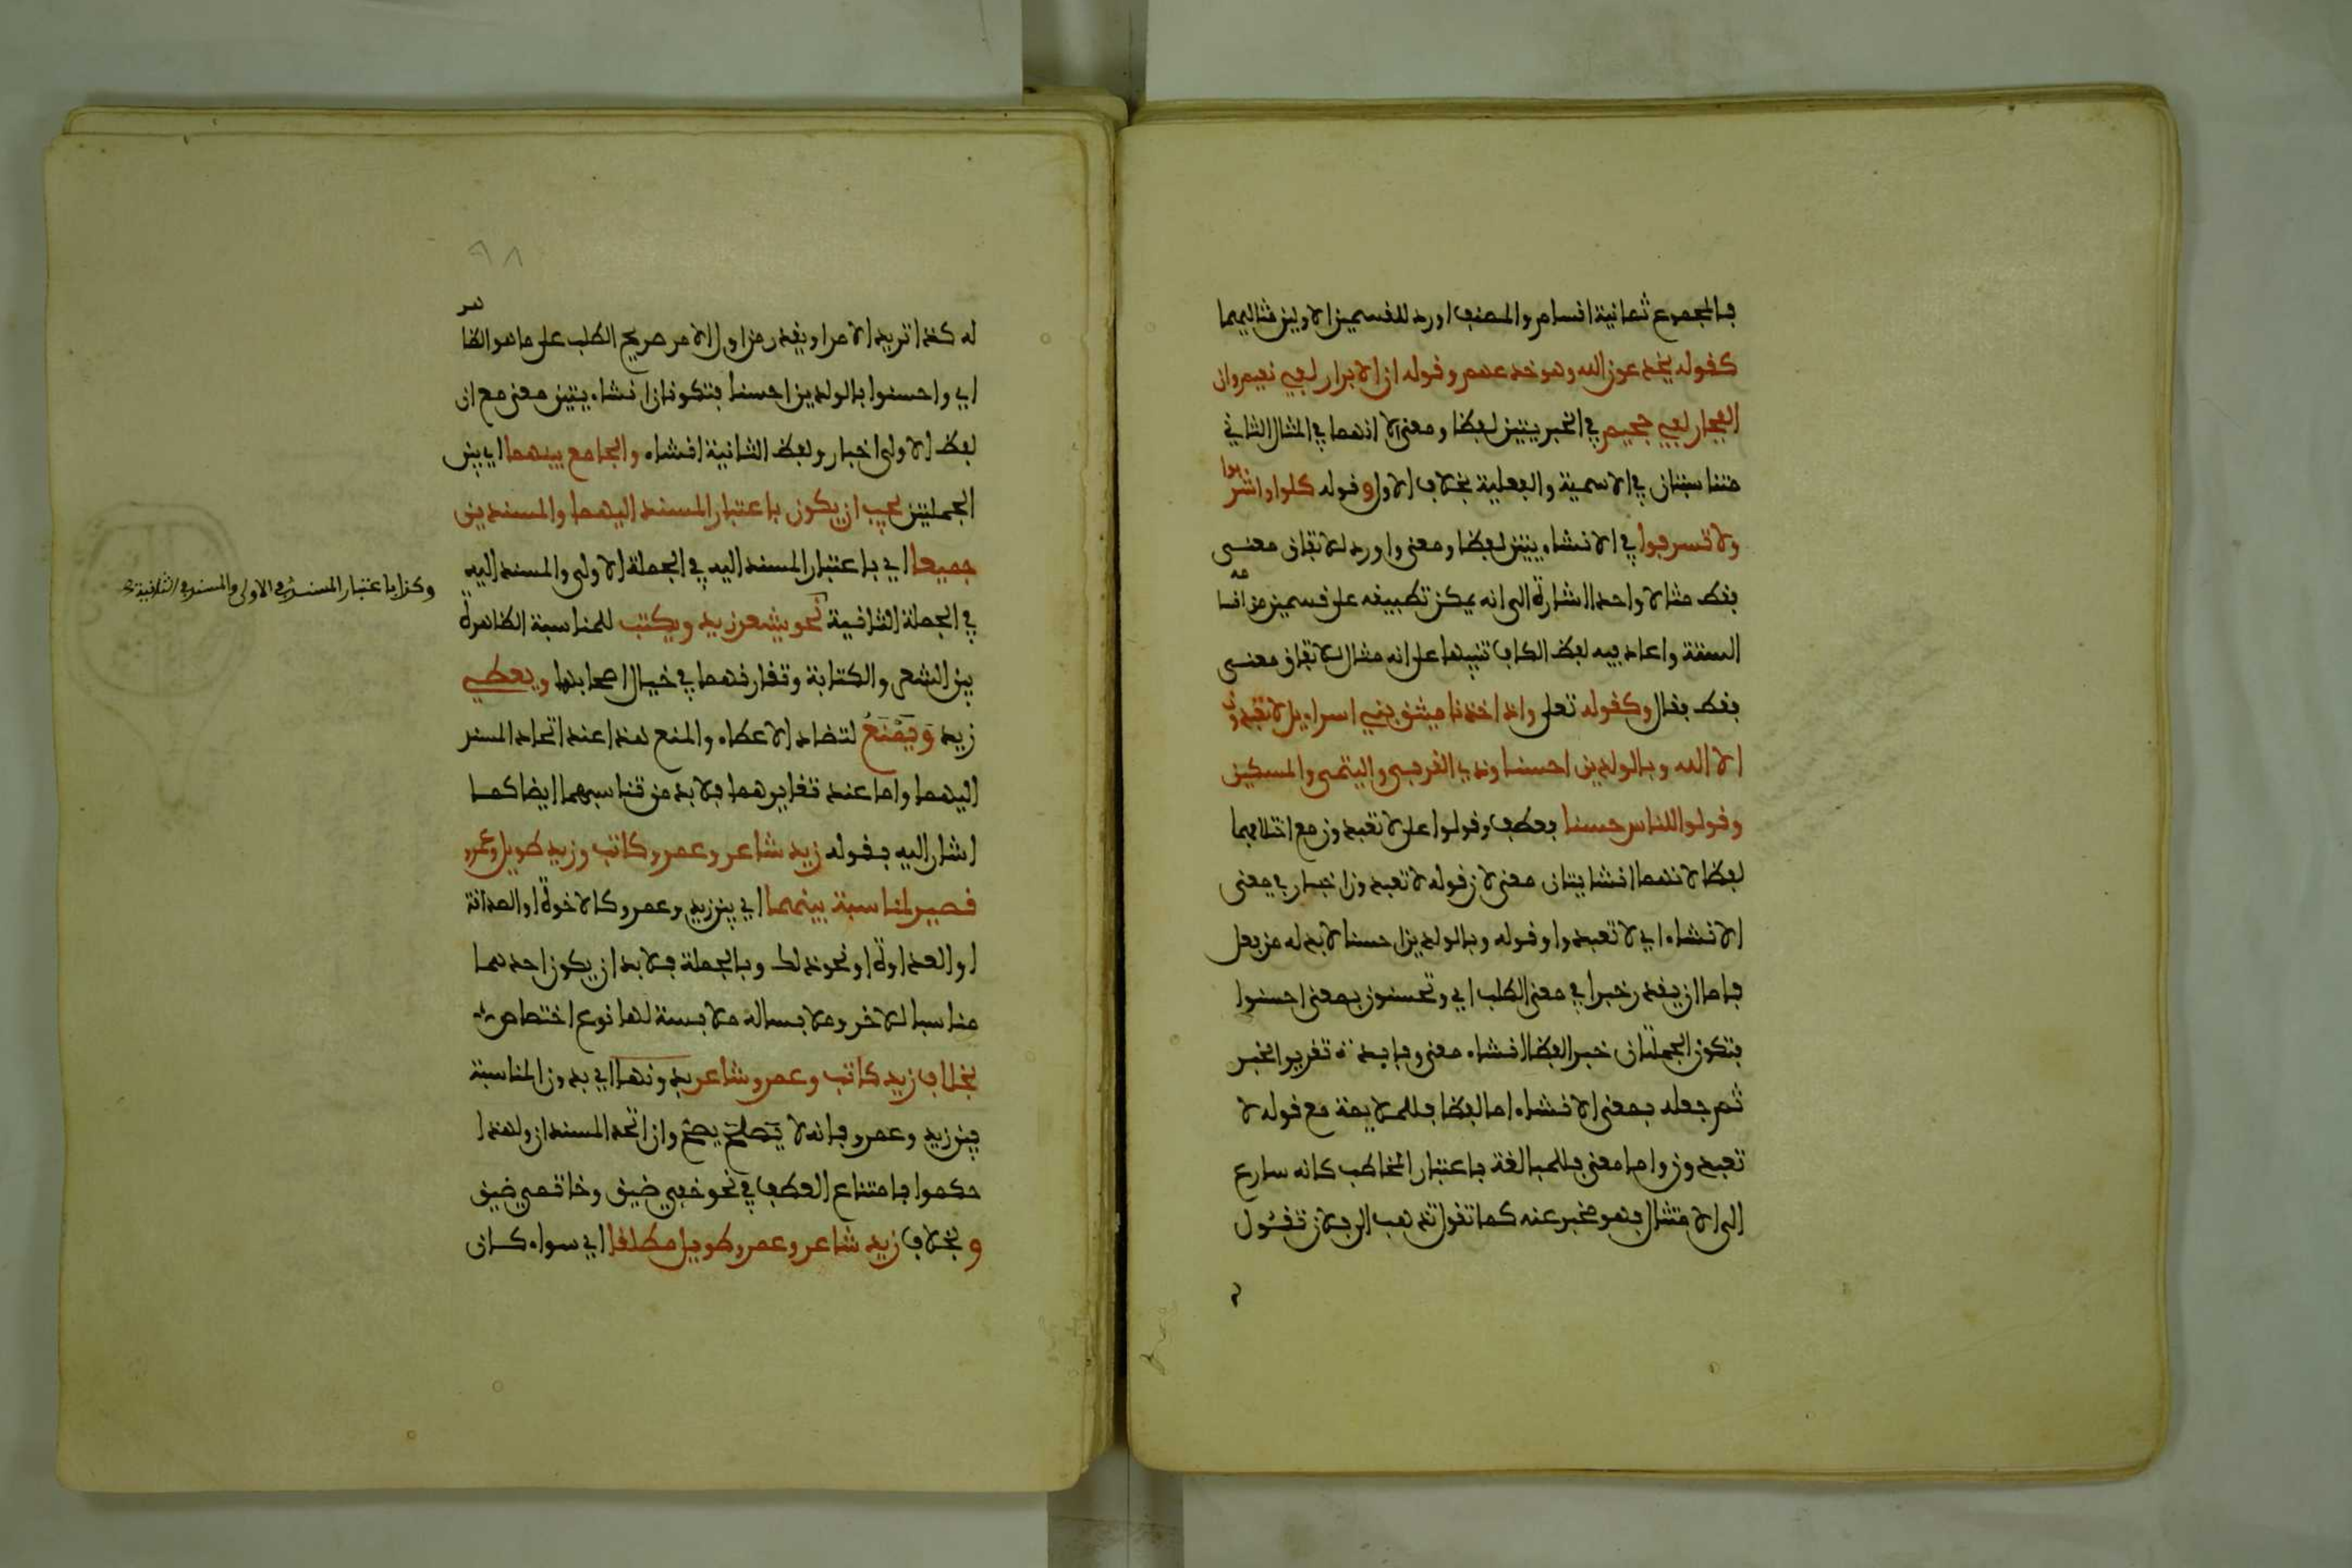 فالمجموع ثمانية اقسام والمصنف اورد للقسمين الاولين مثاليهما
كقوله يخدعون الله وهو خدعهم وقوله ان الابرار لفي نعيم وان
الفجار لفي جحيم في الخبريتين لفظا ومعنى الا انهما في المثال الثاني
متناسبتان في الاسمية والفعلية بخلاف الاول وقوله كلوا واشربوا
ولا تسرفوا في الانشاءيتين لفظا ومعنى واورد للاتفاق معنى
فقط مثالا واحدا اشارة الى انه يمكن تطبيقه على قسمين من اقسامه
الستة واعاد فيه لفظ الكاف تنبيها على انه مثال للاتفاق معنى
فقط فقال وكقوله تعلى واذ اخذنا ميثق بني اسراءيل لا تعبدون
الا الله وبالولدين احسنا وذي القربى واليتمى والمسكين
وقولوا للناس حسنا فعطف وقولوا على لا تعبدون مع اختلافهما
لفظا لانهما انشايتان معنى لان قوله لا تعبدون اخبار في معنى
الانشاء اي لا تعبدوا وقوله وبالولدين احسنا لا بد له من فعل
فاما ان يقدر خبرا في معنى الطلب اي وتحسنون بمعنى احسنوا
فتكون الجملتان خبرا لفظا انشاء معنى وفايدة تقدير الخبر
ثم جعله بمعنى الانشاء اما لفظا فللملايمة مع قوله لا
تعبدون واما معنى فللمبالغة باعتبار المخاطب كانه سارع
الى الامتثال فهو مخبر عنه كما تقول تذهب الى فلان تقول
٩٨
له كذا تريد الامر او يقدر من اول الامر صريح الطلب على ما هو الظاهر
اي واحسنوا بالولدين احسنا فتكونان انشاءيتين معنى مع ان
لفظ الاولى اخبار ولفظ الثانية انشاء والجامع بينهما اي بين
الجملتين يجب ان يكون باعتبار المسند اليهما والمسندين
جميعا اي باعتبار المسند اليه في الجملة الاولى والمسند اليه
وكذا باعتبار المسند في الاولى والمسند في الثانية
في الجملة الثانية نحو يشعر زيد ويكتب للمناسبة الظاهرة
بين الشعر والكتابة وتقارنهما في خيال اصحابها ويعطي
زيد وَيَمْنَعُ لتضاد الاعطاء والمنع هذا عند اتحاد المسند
اليهما واما عند تغايرهما فلا بد من تناسبهما ايضا كما
اشار اليه بقوله زيد شاعر وعمرو كاتب وزيد طويل وعمرو
قصير لمناسبة بينهما اي بين زيد وعمرو كالاخوة او الصداقة
او العداوة او نحو ذلك وبالجملة فلا بد ان يكون احدهما
مناسبا للاخر وملابسا له ملابسة لها نوع اختصاص
بخلاف زيد كاتب وعمرو شاعر بدونها اي بدون المناسبة
بين زيد وعمرو فانه لا يصلح يصح وان اتحد المسندان ولهذا
حكموا بامتناع العطف في نحو خفي ضيق وخاتمي ضيق
وبخلاف زيد شاعر وعمرو طويل مطلقا اي سواء كان